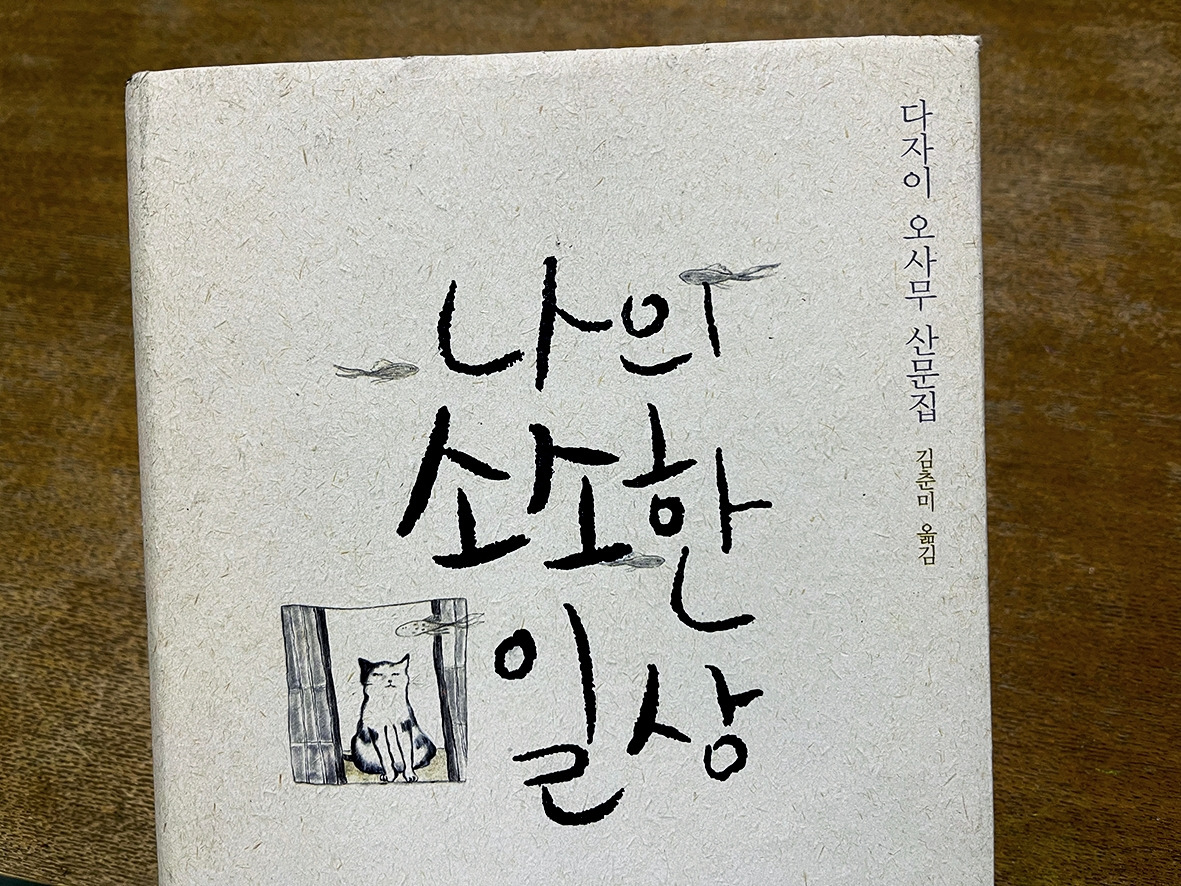 다자이 오사무 산문집 김춘미 옮김
나의
소소한
일상